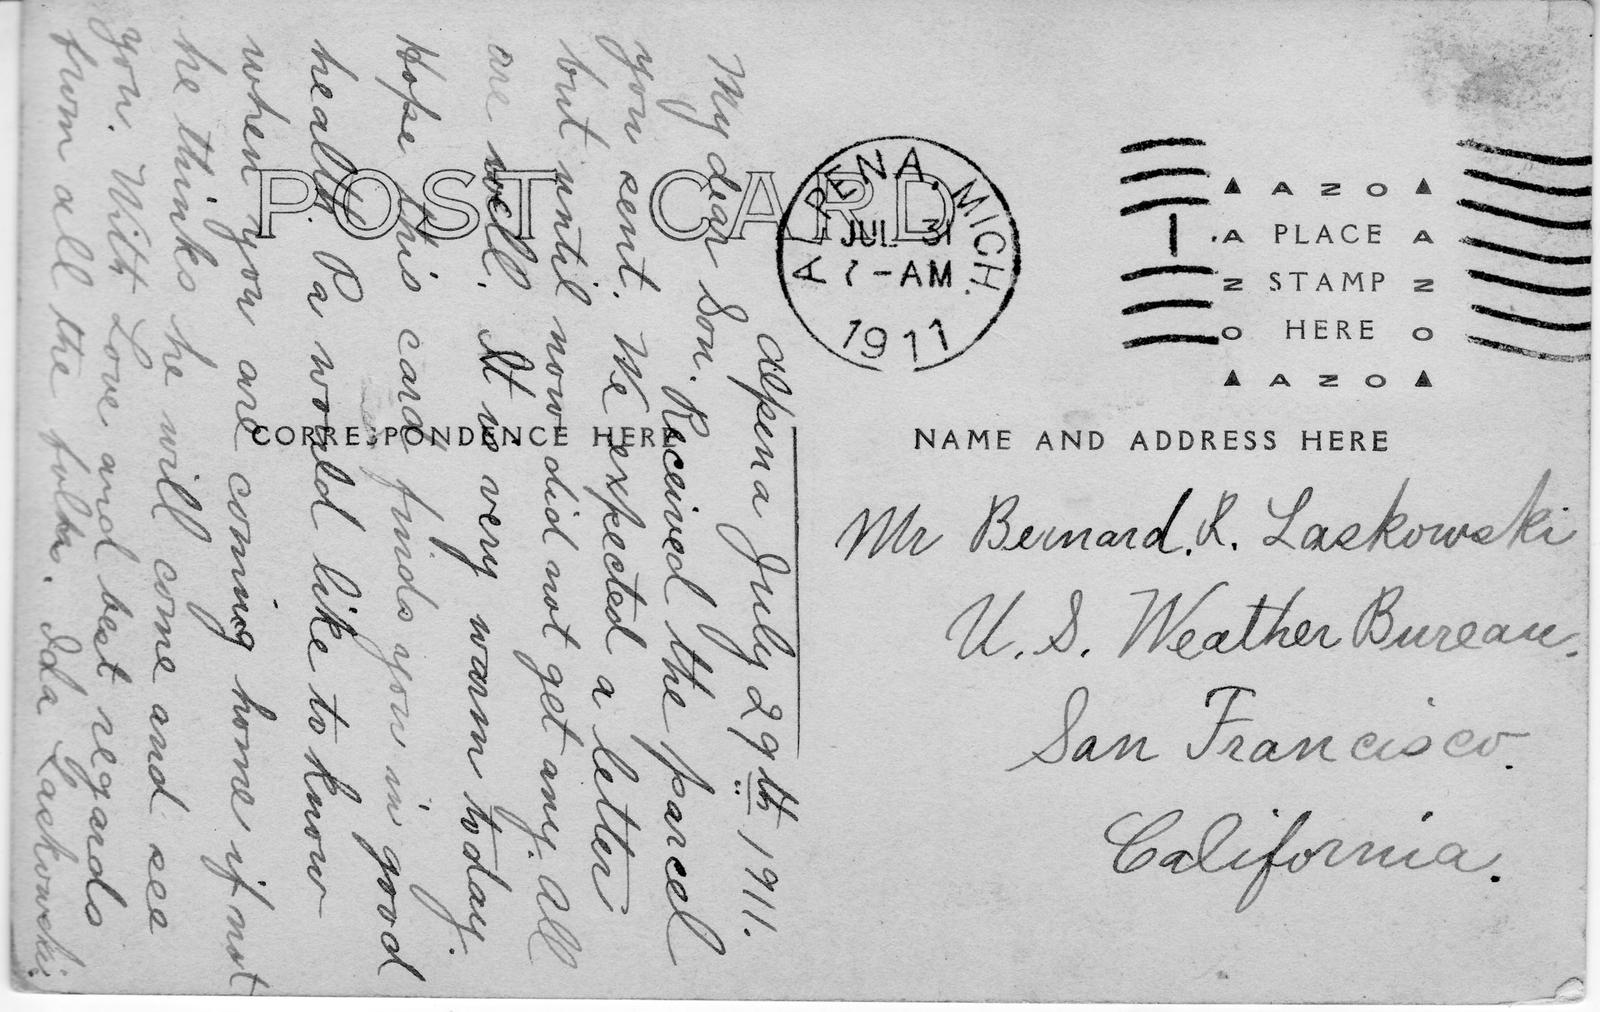 Alpena July 29th 1911.
My dear Son. Received the parcel
you sent. We expected a letter
but until now did not get any. All
are well. It is very warm today.
Hope this card finds you in good
health. Pa would like to know
when you are coming home if not
he thinks he will come and see
you. With Love and best regards
from all the folks. Ida Laskowski.
POST CARD
CORRESPONDENCE HERE
ALPENA, MICH.
JUL 31
7-AM
1911
1
AZO
PLACE
STAMP
HERE
AZO
AZO
AZO
NAME AND ADDRESS HERE
Mr Bernard. R. Laskowski
U. S. Weather Bureau.
San Francisco.
California.